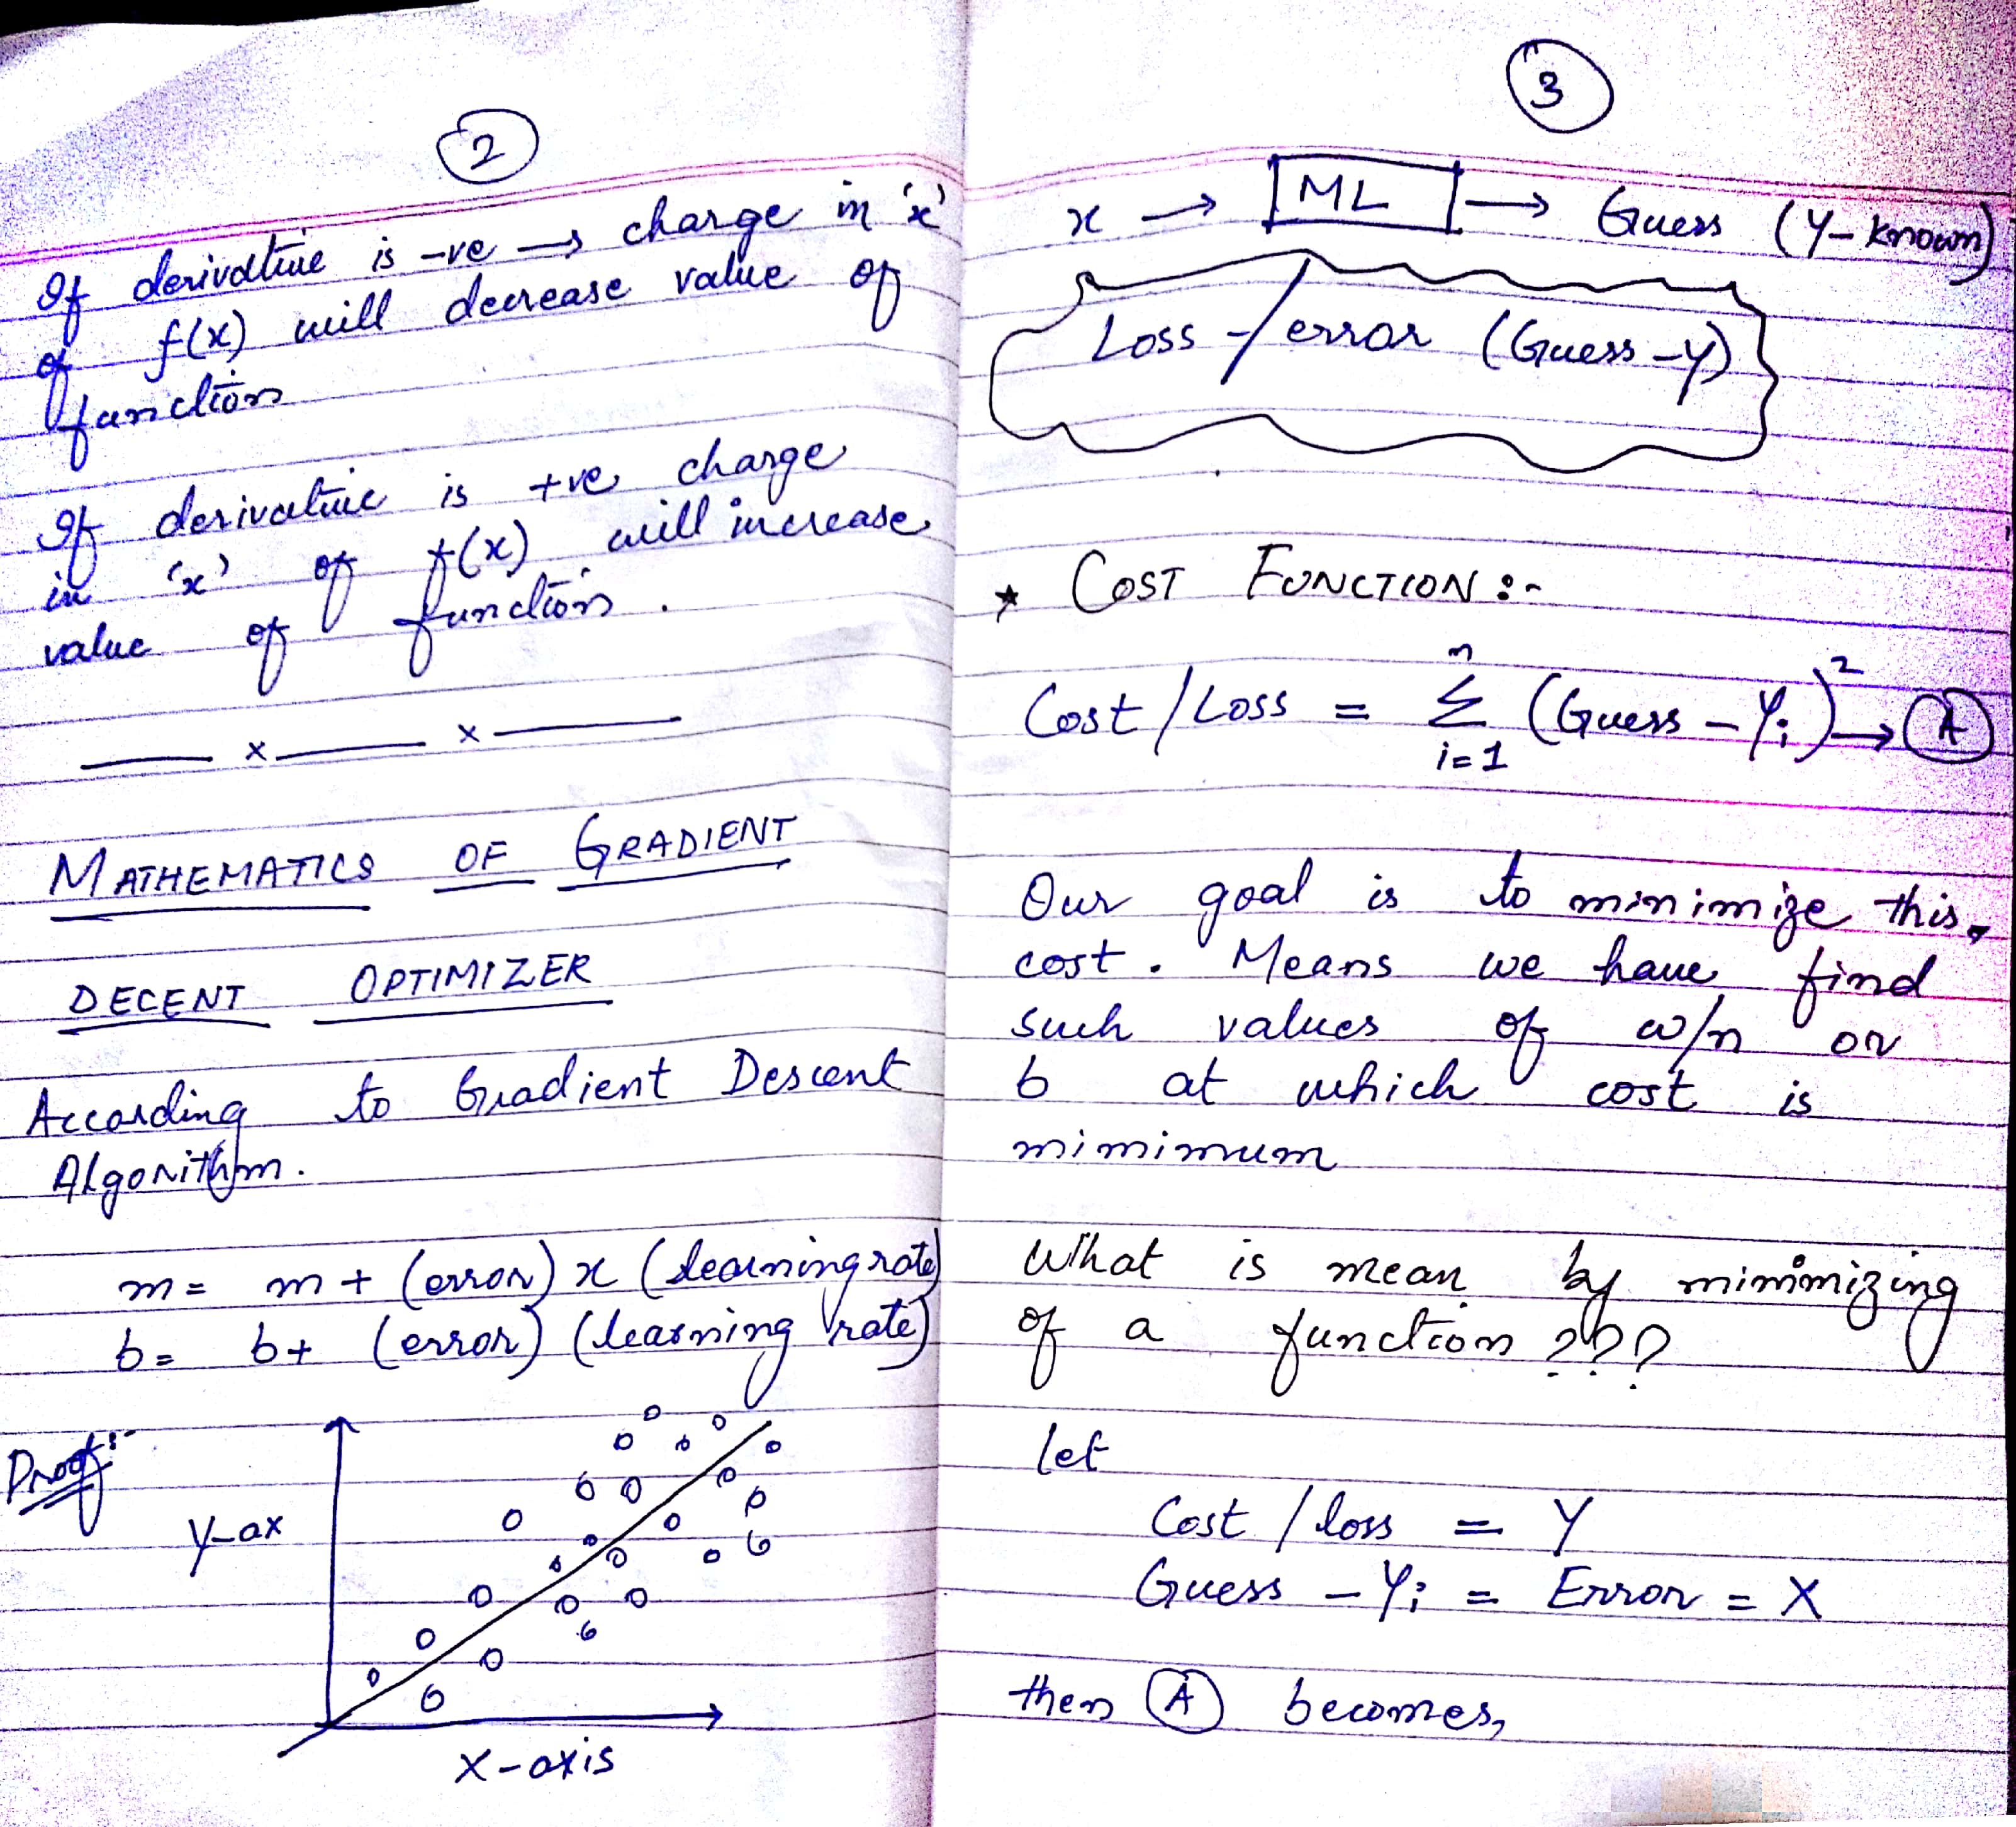 2
If derivative is -ve → change in 'x'
of f(x) will decrease value of
function
If derivative is +ve change
in 'x' of f(x) will increase
value of function.
x x
MATHEMATICS OF GRADIENT
DECENT OPTIMIZER
According to Gradient Descent
Algorithm.
m = m + (error) x (learning rate)
b = b + (error) (learning rate)
Proof:-
Y-ax
X-axis
3
x → ML → Guess (Y-known)
Loss / error (Guess - Y)
★ COST FUNCTION :-
Cost / Loss = Σ_{i=1}^{n} (Guess - Yi)² → A
Our goal is to minimize this
cost. Means we have find
such values of w/n or
b at which cost is
mimimum
What is mean by minimizing
of a function ???
let
Cost / loss = Y
Guess - Yi = Error = X
then A becomes,